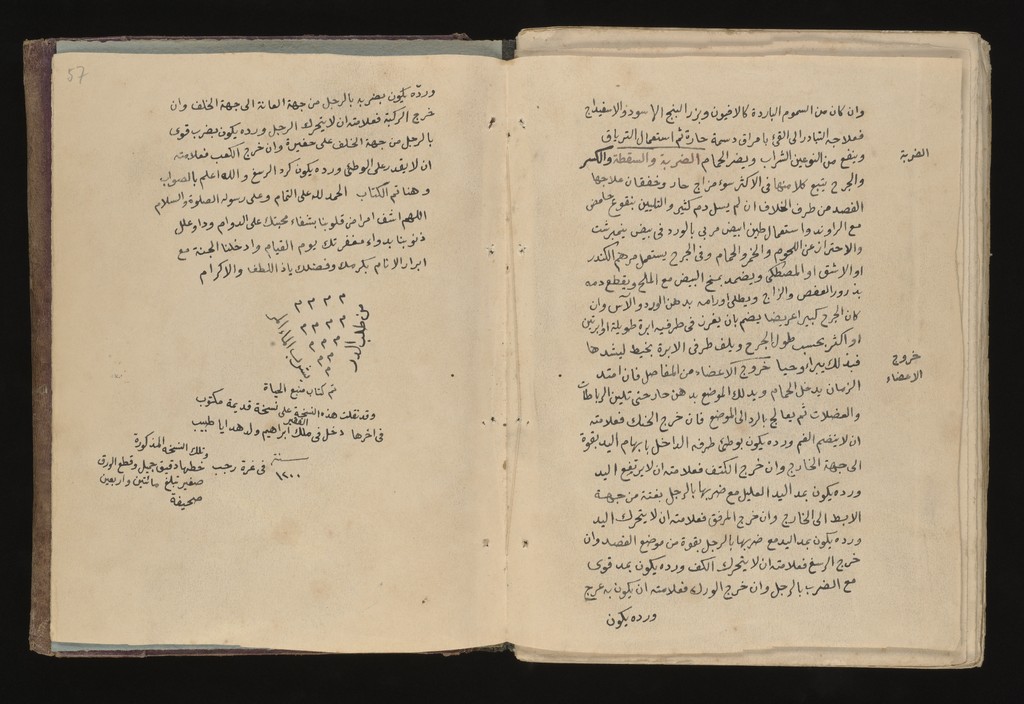 وان كان من السموم الباردة كالافيون وبزر البنج الاسود والاسفيداج
فعلاجه التبادر الى القئ بامراق دسمة حارة ثم استعمال الترياق
وينفع من النوعين الشراب ويضر الحمام الضربة والسقطة والكسر
الضربة
والجرح يتبع كلا منها فى الاكثر سوء مزاج حار وخفقان علاجها
الفصد من طرف الخلاف ان لم يسل دم كثير والتليين بنقوع حامض
مع الراوند واستعمال طين ابيض مربى بالورد فى بيض نيمبرشت
والاحتراز عن اللحوم والخمر والحمام وفى الجرح يستعمل مرهم الكندر
او الاشق او المصطكى ويضمد بمخ البيض مع الملح ويقطع دمه
بذرور العفص والزاج ويطلى اورامه بدهن الورد والآس وان
كان الجرح كبيرا عريضا يضم بان يغرز فى طرفيه ابرة طويلة او ابرتين
او اكثر بحسب طول الجرح ويلف طرفى الابرة بخيط ليشدها
فبذلك يبرأ وحيا خروج الاعضاء من المفاصل فان امتد
خروج
الاعضاء
الزمان يدخل الحمام ويدلك الموضع بدهن حار حتى تلين الرباطات
والعضلات ثم يعالج بالرد الى الموضع فان خرج الحنك فعلامته
ان لا ينضم الفم ورده يكون بوطئ طرفه الداخل بابهام اليد بقوة
الى جهة الخارج وان خرج الكتف فعلامته ان لا يرتفع اليد
ورده يكون بمد اليد العليل مع ضربها بالرجل بغتة من جهة
الابط الى الخارج وان خرج المرفق فعلامته ان لا يتحرك اليد
ورده يكون بمد اليد مع ضربها بالرجل بقوة من موضع الفصد وان
خرج الرسغ فعلامته ان لا يتحرك الكف ورده يكون بمد قوى
مع الضرب بالرجل وان خرج الورك فعلامته ان يكون به عرج
ورده يكون
57
وردّه يكون بضربه بالرجل من جهة العانة الى جهة الخلف وان
خرج الركبة فعلامته ان لا يتحرك الرجل ورده يكون بضرب قوى
بالرجل من جهة الخلف على حفيرة وان خرج الكعب فعلامته
ان لا يقدر على الوطئ ورده يكون كرد الرسغ والله اعلم بالصواب
وهنا تم الكتاب الحمد لله على التمام وعلى رسوله الصلوة والسلام
اللهم اشف امراض قلوبنا بشفاء محبتك على الدوام وداو علل
ذنوبنا بدواء مغفرتك يوم القيام وادخلنا الجنة مع
ابرار الانام بكرمك وفضلك ياذ اللطف والاكرام
م م م م
م م م م
م م م
م م
م
من طلب الدر
تم كتاب منبع الحياة
وقد نقلت هذه النسخة على نسخة قديمة مكتوب
فى اخرها دخل فى ملك الفقير ابراهيم ولد هدايا طبيب
فى غرة رجب سنة ١٢٠٠
وتلك النسخة المذكورة
خطها دقيق جميل وقطع الورق
صغير تبلغ مائتين واربعين
صحيفة